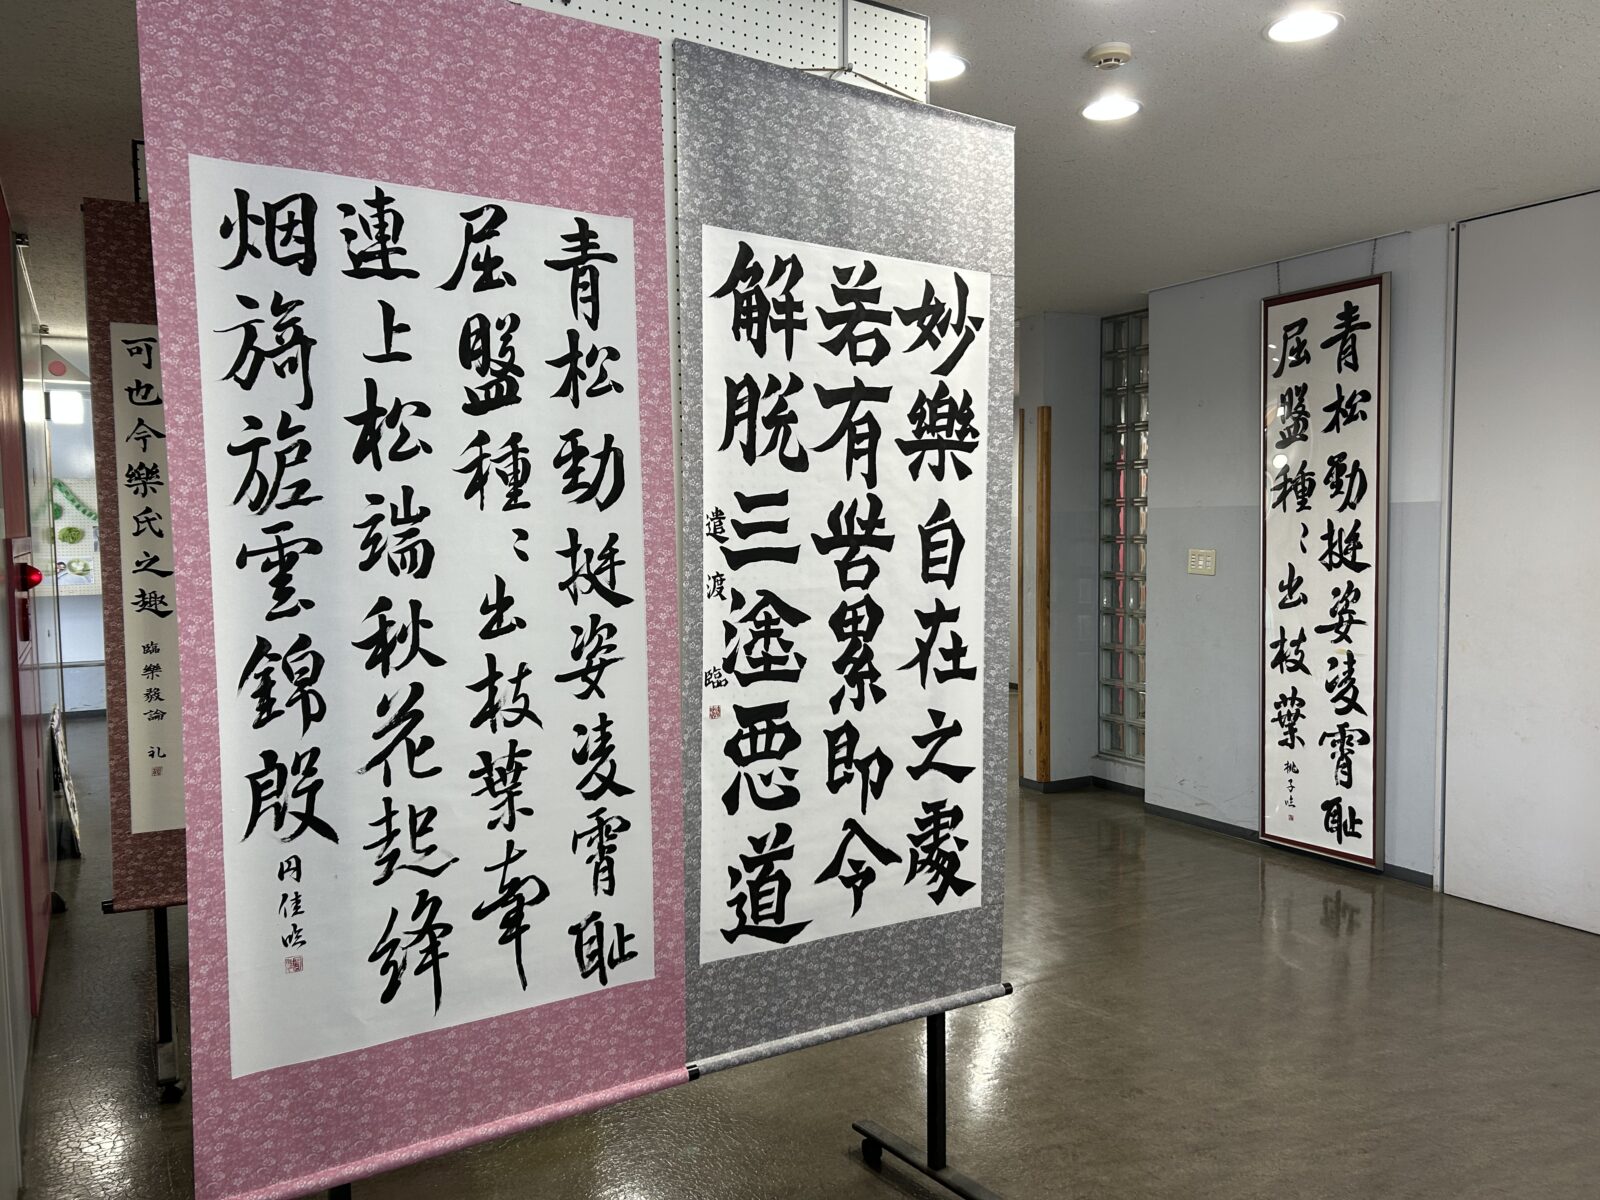 青松勁挺姿凌霄恥
屈盤種〻出枝葉牽
連上松端秋花起絳
烟旖旎雲錦殷
円佳臨
妙樂自在之處
若有苦累即令
解脱三塗悪道
遣渡 臨
青松勁挺姿凌霄恥
屈盤種〻出枝葉
桃子臨
可也今樂氏之趣
臨樂毅論 礼